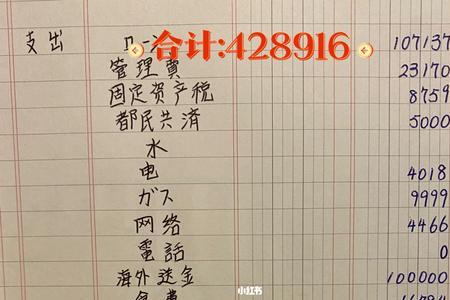 支出 ローン 合计:428916 107137
管理費 23170
固定资产税 8759
都民共済 5000
水
电 4018
ガス 9999
网络 4466
電話 0
海外送金 100000
小红书